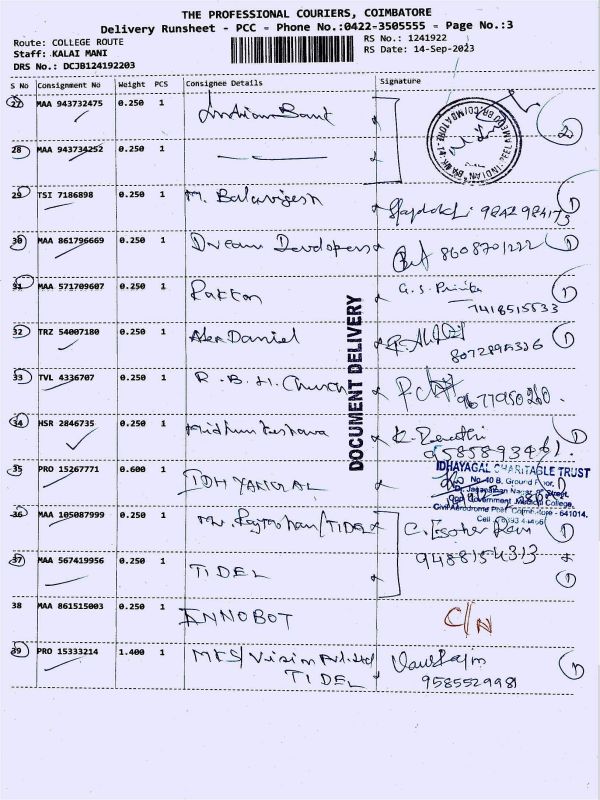 THE PROFESSIONAL COURIERS, COIMBATORE
Delivery Runsheet - PCC - Phone No.:0422-3505555 - Page No.:3
Route: COLLEGE ROUTE
RS No.: 1241922
Staff: KALAI MANI
RS Date: 14-Sep-2023
DRS No.: DCJB124192203
S No Consignment No Weight PCS Consignee Details Signature
27 MAA 943732475 0.250 1 Indian Bank
28 MAA 943734252 0.250 1
29 TSI 7186898 0.250 1 M. Balavignesh
30 MAA 861796669 0.250 1 Dream Developers 8608701222
31 MAA 571709607 0.250 1 Rakton G.S. 7418515533
32 TRZ 54007180 0.250 1 Alex Daniel
33 TVL 4336707 0.250 1 R.B.H. Church
34 HSR 2846735 0.250 1 K. Revathi
DOCUMENT DELIVERY
35 PRO 15267771 0.600 1
IDHAYAGAL CHARITABLE TRUST
No. 40 B, Ground Floor,
Opp. Government Medical College,
Civil Aerodrome Post, Coimbatore - 641014.
36 MAA 105087999 0.250 1 Mr. Rajmohan/TIDEL
9488154313
37 MAA 567419956 0.250 1 TIDEL
38 MAA 861515003 0.250 1 INNOBOT C/N
39 PRO 15333214 1.400 1 MKS/Vision Pvt.Ltd
TIDEL 9585529981